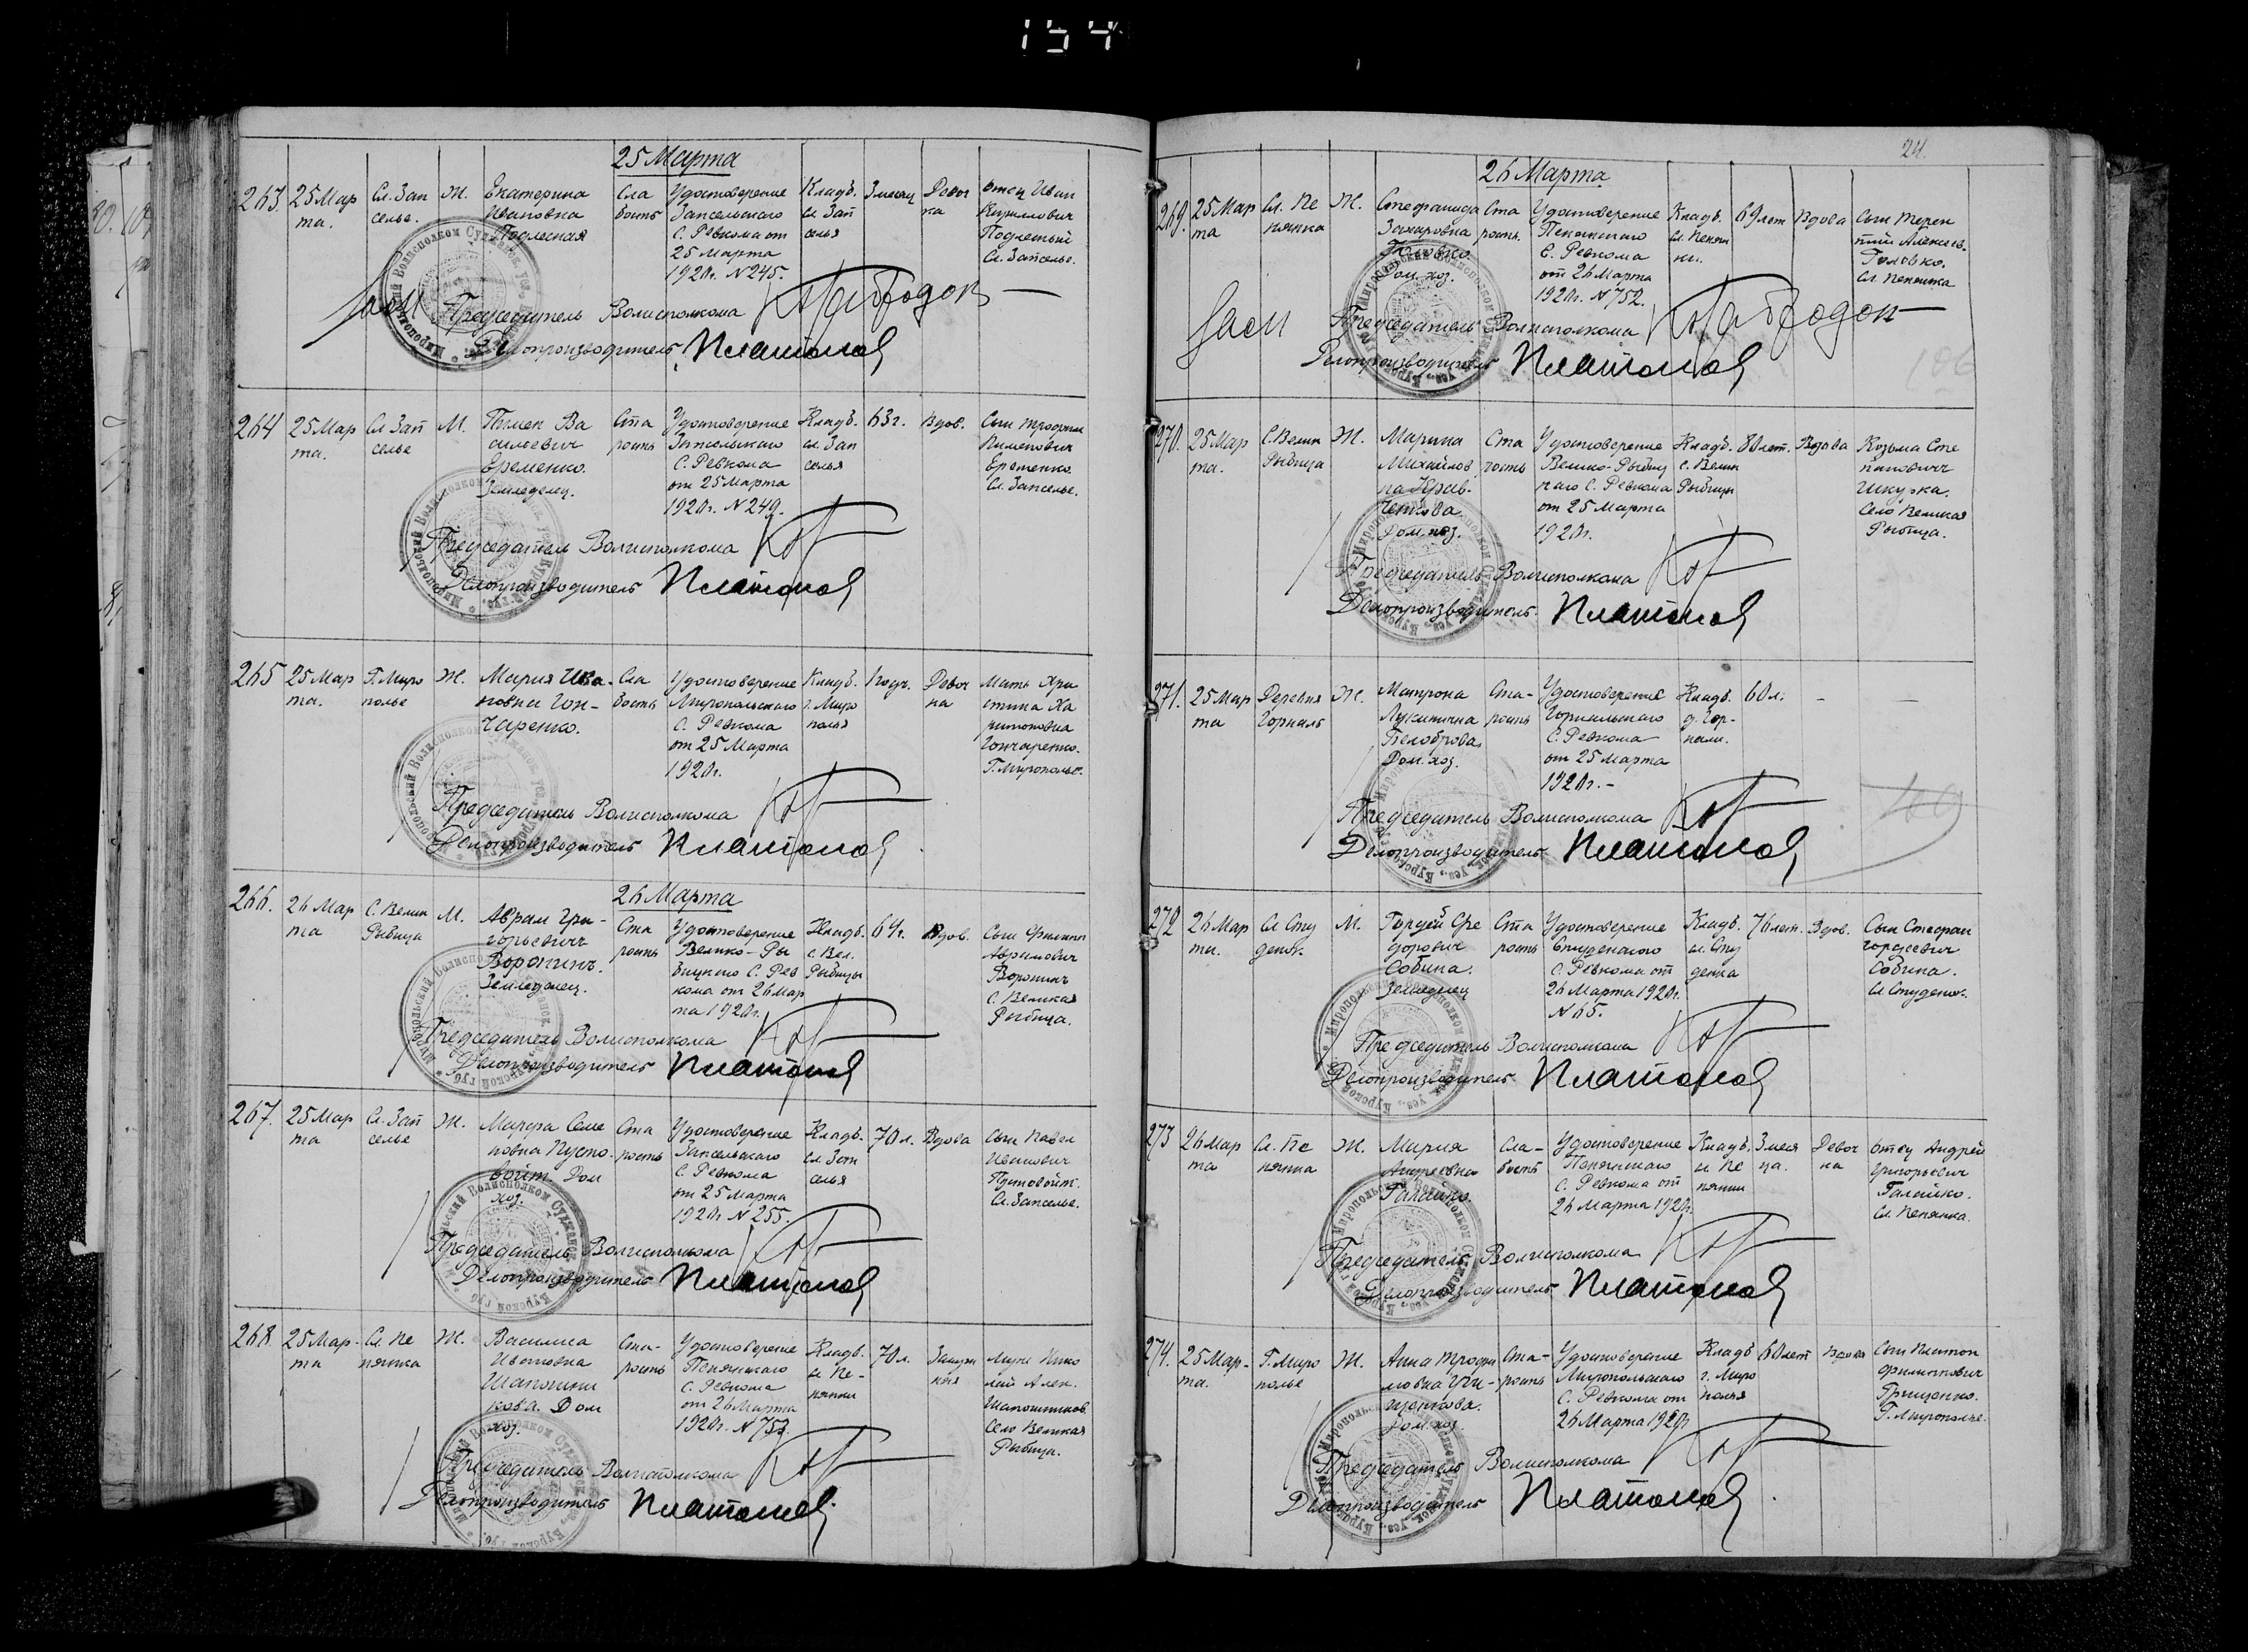 154
25 Марта
263.
25 Мар
та.
Сл. Зап
селье.
Ж.
Екатерина
Ивановна
Подлесная
Сла
бость
Удостоверение
Запсельского
С. Ревкома от
25 Марта
1920г. N 245.
Кладб.
сл Зап
селья
3 месяц
Девоч
ка
Отец Иван
Кириллович
Подлесный
Сл. Запселье.
Председатель Волисполкома
Делопроизводитель Платонов
264
25 Мар
та.
Сл Зап
селье
М.
Пимен Ва
сильевич
Еременко.
Земледелец.
Ста
рость
Удостоверение
Запсельского
С. Ревкома
от 25 Марта
1920г. N 249.
Кладб.
сл. Зап
селья
63г.
Вдов.
Сын Трофим
Пименович
Еременко.
Сл. Запселье.
Председатель Волисполкома
Делопроизводитель Платонов
265
25 Мар
та.
Г. Миро
полье
Ж.
Мария Ива-
новна Гон-
чаренко.
Сла
бость
Удостоверение
Миропольского
С. Ревкома
от 25 Марта
1920г.
Кладб.
г. Миро
полья
1 год.
Девоч
ка
Мать Хри
стина Ха
ритоновна
Гончаренко.
Г. Мирополье.
Председатель Волисполкома
Делопроизводитель Платонов
26 Марта
266.
26 Мар
та
С. Велик
Рыбица
М.
Аврам Гри-
горьевич
Воронинъ.
Земледелец.
Ста
рость
Удостоверение
Велико-Ры
бицкого С. Рев
кома от 26 Мар
та 1920г.
Кладб.
с. Вел.
Рыбицы
64г.
Вдов.
Сын Филипп
Аврамович
Воронинъ
С. Великая
Рыбица.
Председатель Волисполкома
Делопроизводитель Платонов
267.
25 Мар
та
Сл. Зап
селье
Ж.
Марфа Семе
новна Пусто-
войт. Дом
хоз.
Ста
рость
Удостоверение
Запсельского
С. Ревкома
от 25 Марта
1920г. N 255.
Кладб.
сл. Зап
селья
70 л.
Вдова
Сын Павел
Иванович
Пустовойт.
Сл. Запселье.
Председатель Волисполкома
Делопроизводитель Платонов
268
25 Мар-
та
Сл. Пе
нянка
Ж.
Василиса
Ивановна
Шапошни
кова. Дом
хоз.
Ста-
рость
Удостоверение
Пенянского
С. Ревкома
от 26 Марта
1920г. N 753.
Кладб.
сл Пе-
нянки
70 л.
Муж Нико
лай Алек.
Шапошников.
Село Великая
Рыбица.
Председатель Волисполкома
Делопроизводитель Платонов
24.
26 Марта
269.
25 Мар
та
Сл. Пе
нянка
Ж.
Стефанида
Захаровна
Головко.
Дом. хоз.
Ста
рость.
Удостоверение
Пенянского
С. Ревкома
от 26 Марта
1920г. N 752.
Кладб.
сл. Пенян
ки.
69 лет
Вдова
Сын Терен
тий Алексеев.
Головко.
Сл. Пенянка
Председатель Волисполкома
Делопроизводитель Платонов
106
270.
25 Мар
та.
С. Велик
Рыбица
Ж.
Марина
Михайлов
на Крав-
ченкова
Дом. хоз.
Ста
рость
Удостоверение
Велико-Рыбиц
кого С. Ревкома
от 25 Марта
1920г.
Кладб.
с. Велик
Рыбицы
80 лет.
Вдова
Козьма Сте
панович
Шкурка.
Село Великая
Рыбица.
Председатель Волисполкома
Делопроизводитель Платонов
271.
25 Мар
та
Деревня
Горналь
Ж.
Матрона
Лукинична
Белоброва
Дом. хоз.
Ста-
рость
Удостоверение
Горнальского
С. Ревкома
от 25 Марта
1920г. -
Кладб.
д. Гор-
нали.
60 л.
-
-
Председатель Волисполкома
Делопроизводитель Платонов
272
26 Мар
та.
Сл Сту
денок
М.
Гордей Фе
дорович
Собина.
Земледелец
Ста
рость
Удостоверение
Студенского
С. Ревкома от
26 Марта 1920г.
N 65.
Кладб.
сл. Сту
денка
76 лет.
Вдов.
Сын Стефан
Гордеевич
Собина.
Сл Студенок.
Председатель Волисполкома
Делопроизводитель Платонов
273
26 Мар
та
Сл. Пе
нянка
Ж.
Мария
Андреевна
Галайко.
Сла-
бость
Удостоверение
Пенянского
С. Ревкома от
26 Марта 1920г.
Кладб.
сл Пе
нянки
3 меся
ца.
Девоч
ка
Отец Андрей
Григорьевич
Галайко.
Сл. Пенянка.
Председатель Волисполкома
Делопроизводитель Платонов
274.
25 Мар-
та.
Г. Миро
полье
Ж.
Анна Трофи
мовна Гри-
щенкова.
Дом. хоз.
Ста-
рость
Удостоверение
Миропольского
С. Ревкома от
26 Марта 1920г
Кладб
г. Миро
полья
60 лет
Вдова
Сын Платон
Филиппович
Грищенко.
Г. Мирополье.
Председатель Волисполкома
Делопроизводитель Платонов